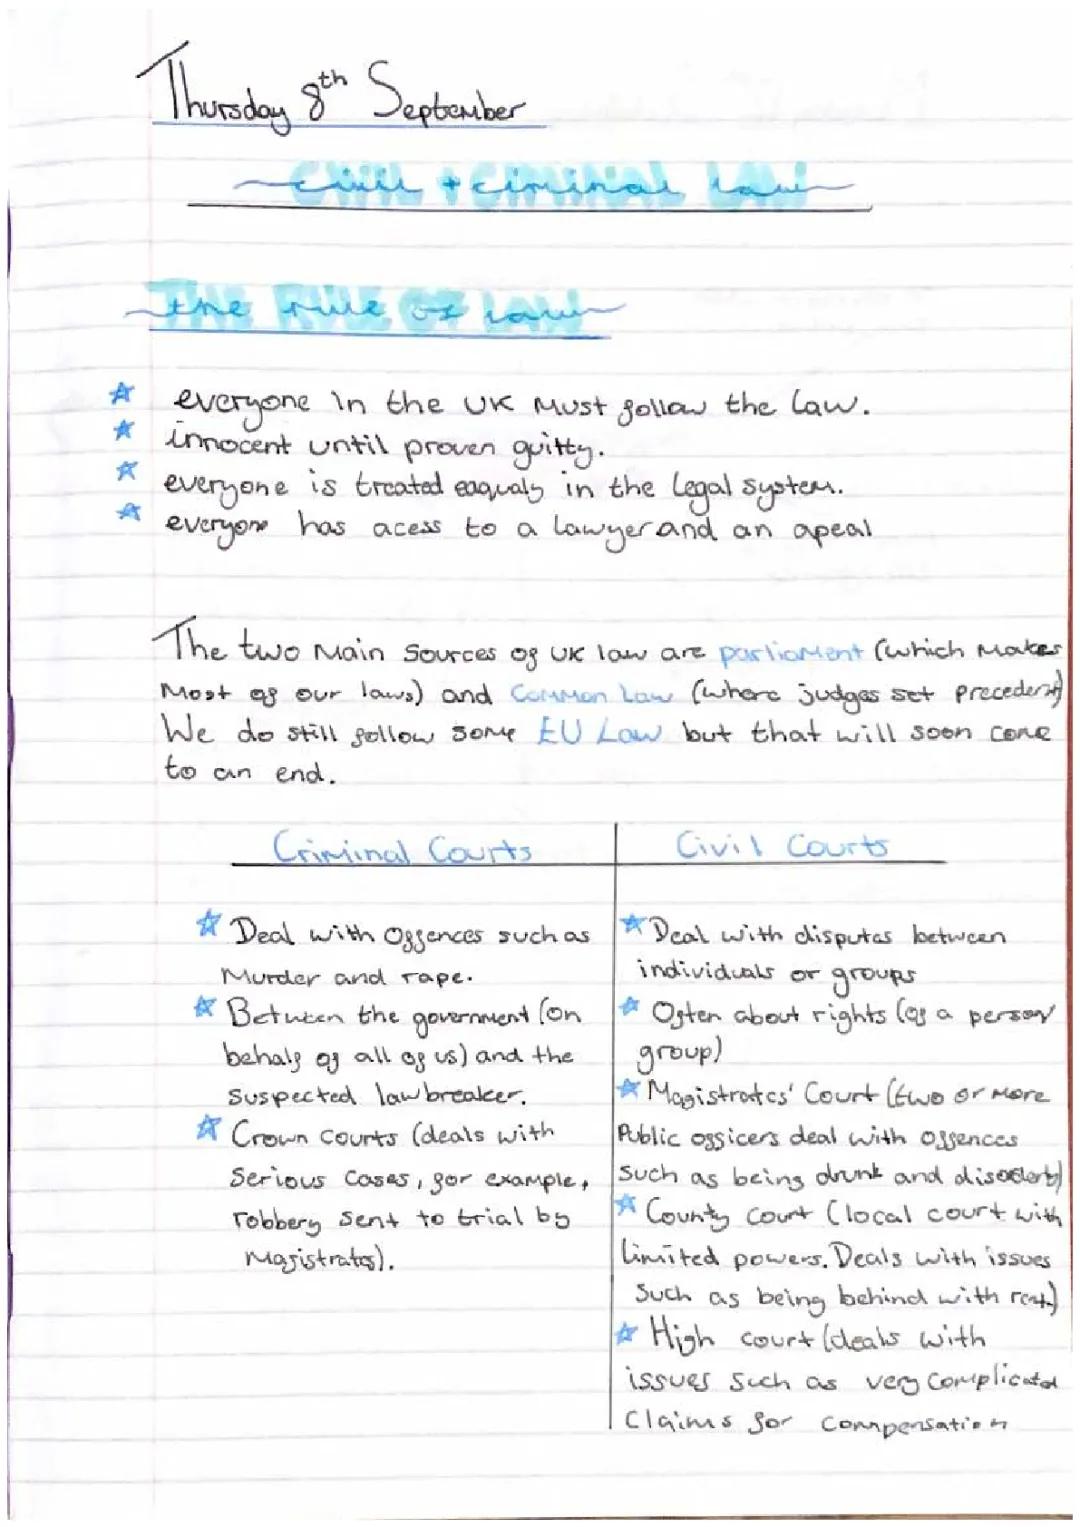 Thursday 8th September
civil + criminal law
the rule of law
everyone in the UK must follow the law.
innocent until proven guitty.
everyone is treated eaqualy in the legal system.
everyone has acess to a lawyer and an apeal
The two main sources of UK law are parliament (which makes
most of our laws) and common law (where judges set precedent)
We do still follow some EU Law but that will soon come
to an end.
Criminal Courts
Deal with offences such as
murder and rape.
Between the government (on
behalf of all of us) and the
suspected lawbreaker.
Crown courts (deals with
serious cases, for example,
robbery sent to trial by
magistrates).
Civil Courts
Deal with disputes between
individuals or groups
Often about rights (of a person/
group)
Magistrates' Court (two or more
Public officers deal with offences
such as being drunk and disorderly)
County court (local court with
limited powers. Deals with issues
such as being behind with rent.)
High court (deals with
issues such as very complicated
claims for compensation